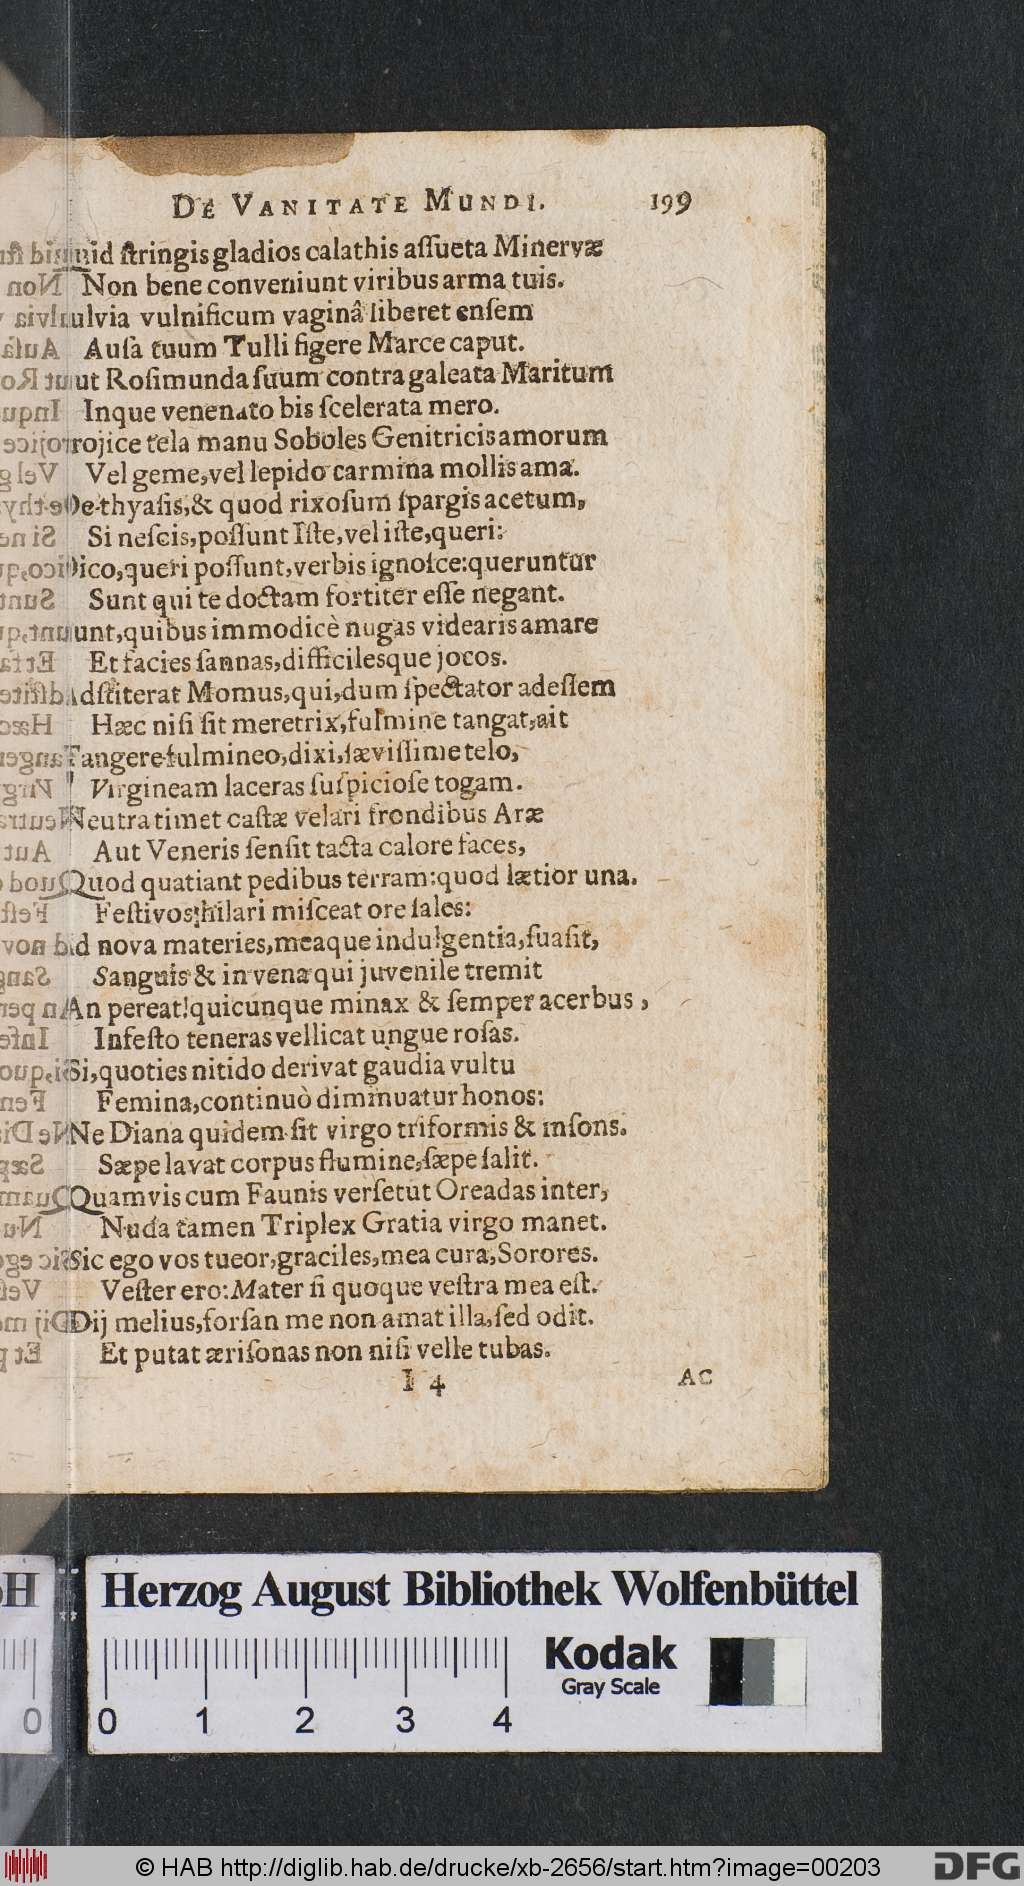 DE VANITATE MUNDI. 199
uid ſtringis gladios calathis aſſueta Minervæ
Non bene conveniunt viribus arma tuis.
ulvia vulnificum vaginâ liberet enſem
Auſa tuum Tulli figere Marce caput.
ut Roſimunda ſuum contra galeata Maritum
Inque venenato bis ſcelerata mero.
rojice tela manu Soboles Genitricis amorum
Vel geme, vel lepido carmina mollis ama.
De thyaſis, & quod rixoſum ſpargis acetum,
Si neſcis, poſſunt Iſte, vel iſte, queri:
Dico, queri poſſunt, verbis ignoſce: queruntur
Sunt qui te doctam fortiter eſſe negant.
unt, quibus immodicè nugas videaris amare
Et facies ſannas, difficilesque jocos.
Adſtiterat Momus, qui, dum ſpectator adeſſem
Hæc niſi ſit meretrix, fulmine tangat, ait
Tangere fulmineo, dixi, ſæviſſime telo,
Virgineam laceras ſuſpicioſe togam.
Neutra timet caſtæ velari frondibus Aræ
Aut Veneris ſenſit tacta calore faces,
Quod quatiant pedibus terram: quod lætior una.
Feſtivos hilari miſceat ore ſales:
d nova materies, meaque indulgentia, ſuaſit,
Sanguis & in vena qui juvenile tremit
An pereat! quicunque minax & ſemper acerbus,
Infeſto teneras vellicat ungue roſas.
Si, quoties nitido derivat gaudia vultu
Femina, continuò diminuatur honos:
Ne Diana quidem ſit virgo triformis & inſons.
Sæpe lavat corpus flumine, ſæpe ſalit.
Quamvis cum Faunis verſetut Oreadas inter,
Nuda tamen Triplex Gratia virgo manet.
Sic ego vos tueor, graciles, mea cura, Sorores.
Veſter ero: Mater ſi quoque veſtra mea eſt.
Dij melius, forſan me non amat illa, ſed odit.
Et putat æriſonas non niſi velle tubas.
I 4 AC
Herzog August Bibliothek Wolfenbüttel
Kodak
Gray Scale
0 0 1 2 3 4
© HAB http://diglib.hab.de/drucke/xb-2656/start.htm?image=00203 DFG